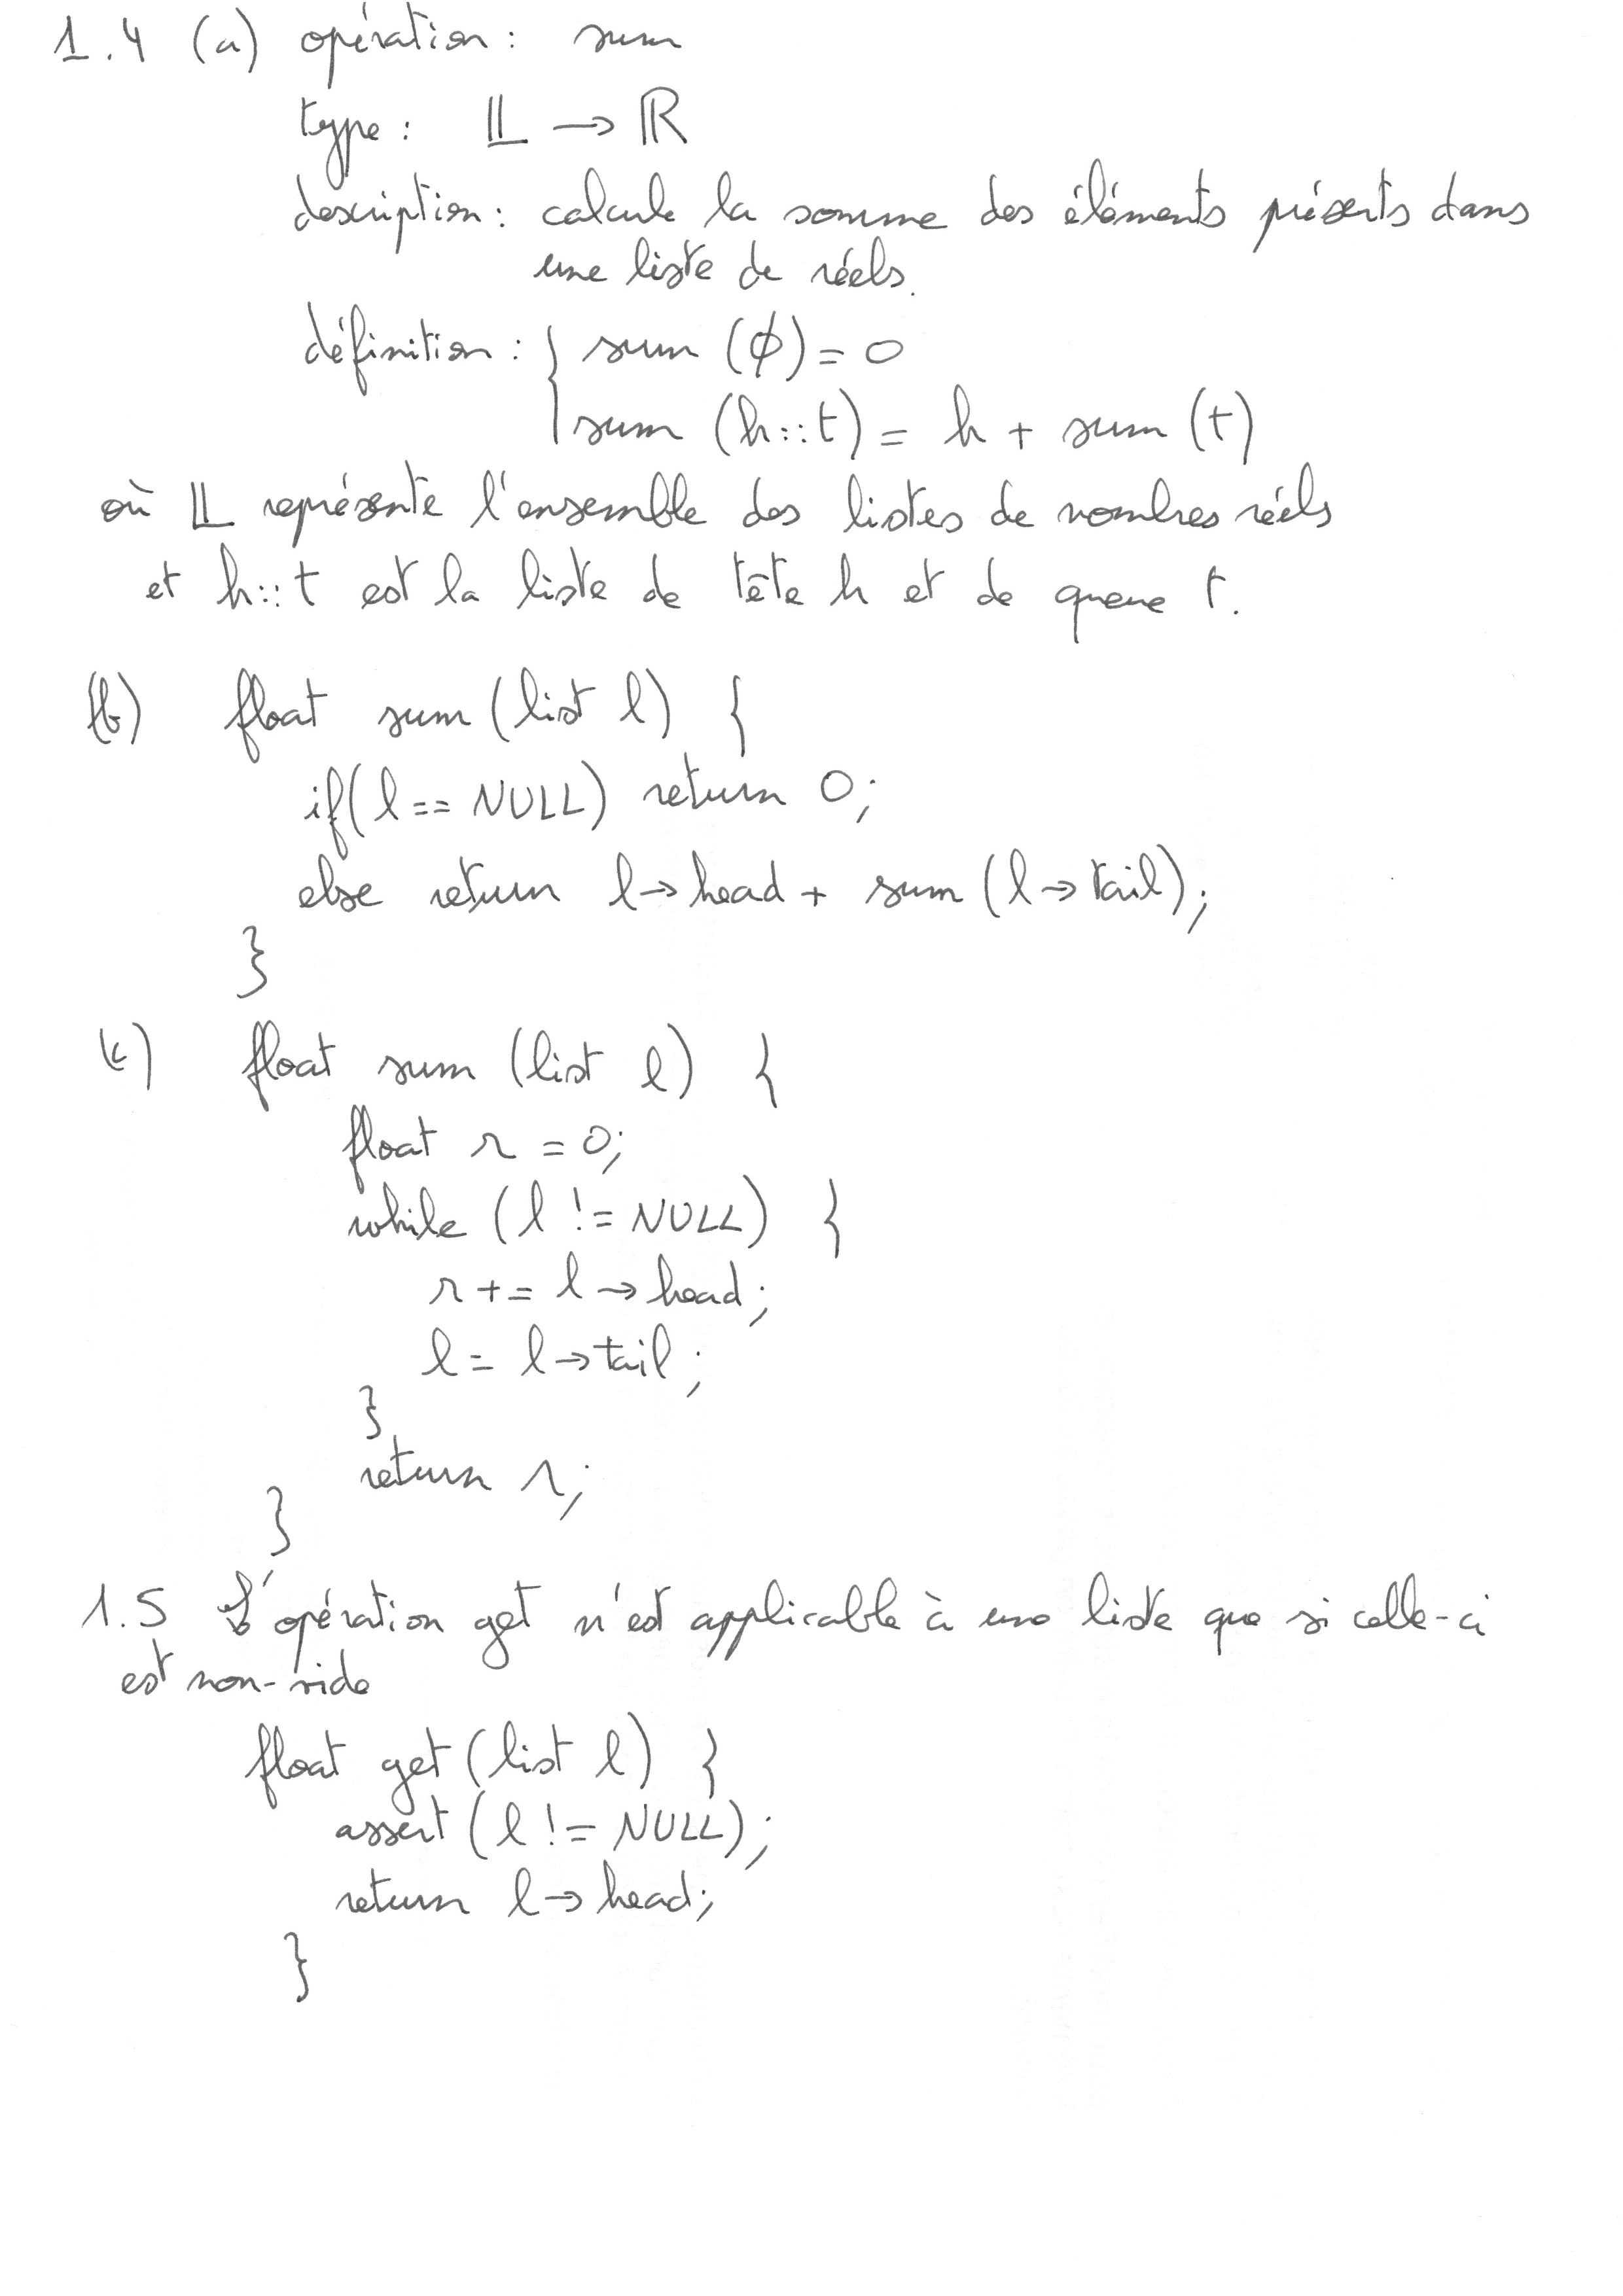 1.4 (a) opération : sum
type : 𝕃 → ℝ
description : calcule la somme des éléments présents dans
une liste de réels.
définition : { sum (∅) = 0
sum (h::t) = h + sum (t)
où 𝕃 représente l'ensemble des listes de nombres réels
et h::t est la liste de tête h et de queue t.
(b) float sum (list l) {
if (l == NULL) return 0;
else return l→head + sum (l→tail);
}
(c) float sum (list l) {
float r = 0;
while (l != NULL) {
r += l→head;
l = l→tail;
}
return r;
}
1.5 L'opération get n'est applicable à une liste que si celle-ci
est non-vide
float get (list l) {
assert (l != NULL);
return l→head;
}